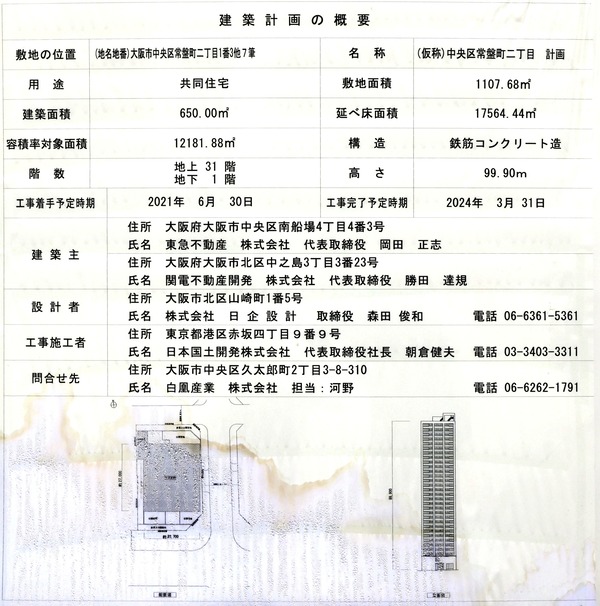 建築計画の概要
敷地の位置 (地名地番)大阪市中央区常盤町二丁目1番3他7筆 名称 (仮称)中央区常盤町二丁目 計画
用途 共同住宅 敷地面積 1107.68㎡
建築面積 650.00㎡ 延べ床面積 17564.44㎡
容積率対象面積 12181.88㎡ 構造 鉄筋コンクリート造
階数 地上 31 階 高さ 99.90m
地下 1 階
工事着手予定時期 2021年 6月 30日 工事完了予定時期 2024年 3月 31日
建築主 住所 大阪府大阪市中央区南船場4丁目4番3号
氏名 東急不動産 株式会社 代表取締役 岡田 正志
住所 大阪府大阪市北区中之島3丁目3番23号
氏名 関電不動産開発 株式会社 代表取締役 勝田 達規
設計者 住所 大阪市北区山崎町1番5号
氏名 株式会社 日企設計 取締役 森田 俊和 電話 06-6361-5361
工事施工者 住所 東京都港区赤坂四丁目9番9号
氏名 日本国土開発株式会社 代表取締役社長 朝倉健夫 電話 03-3403-3311
問合せ先 住所 大阪市中央区久太郎町2丁目3-8-310
氏名 白凰産業 株式会社 担当:河野 電話 06-6262-1791
配置図 立面図